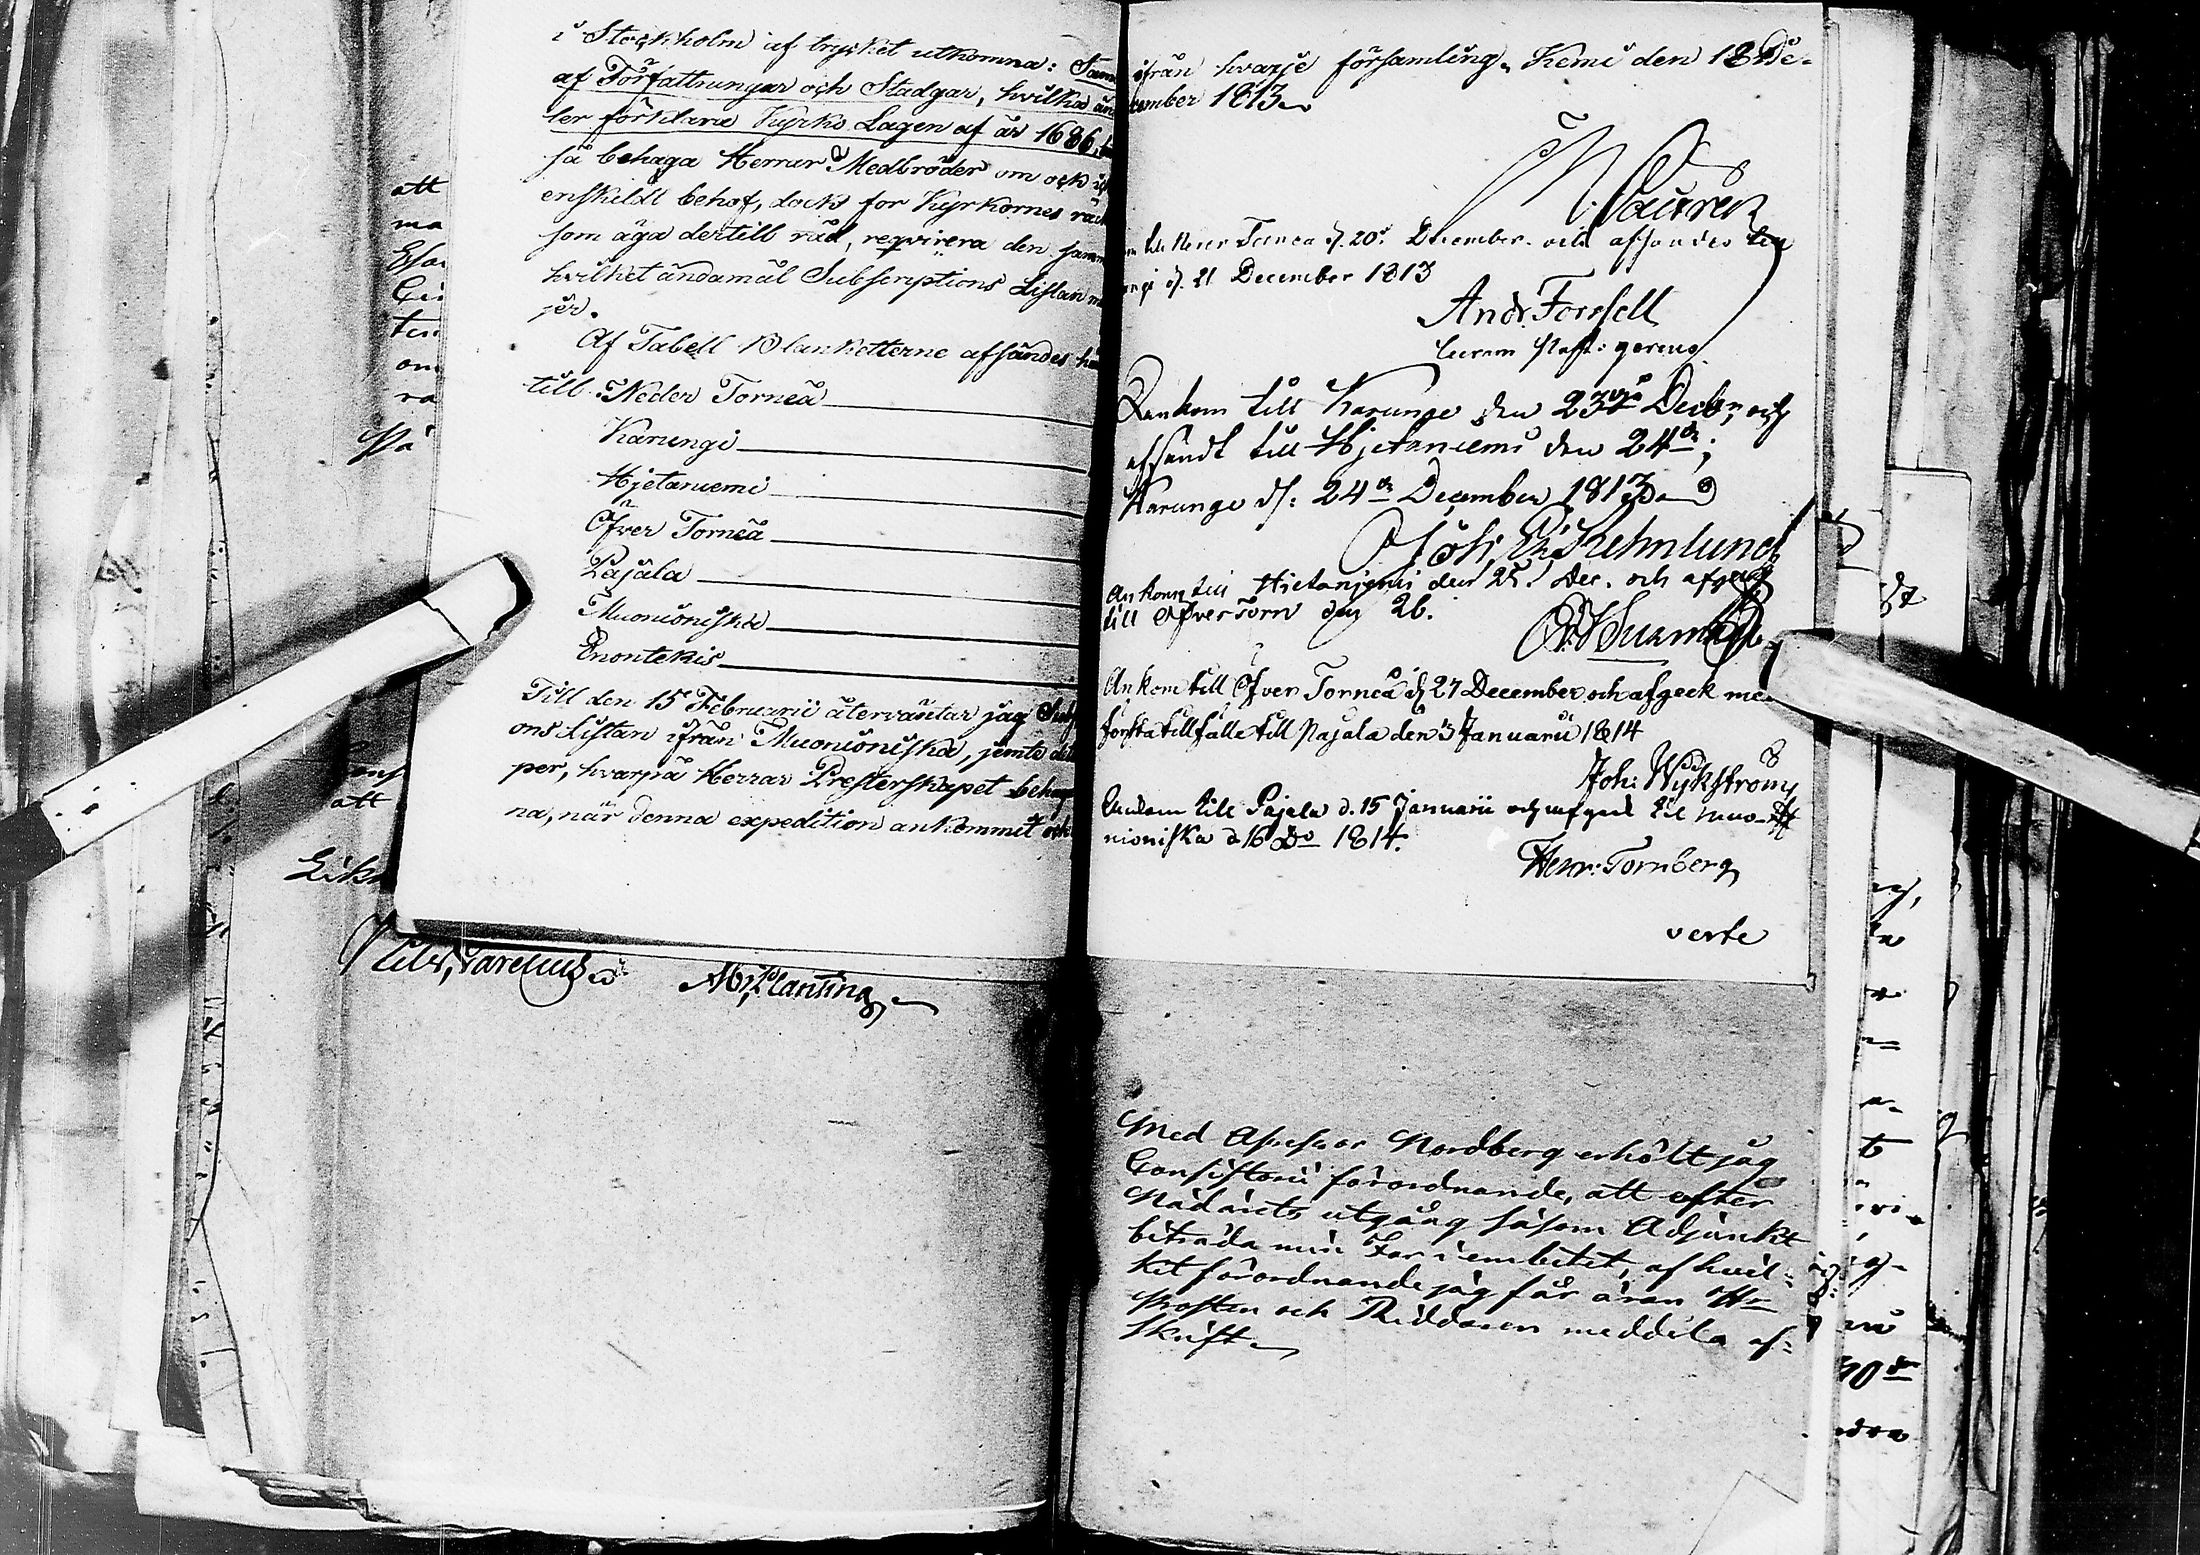 i Stockholm af trycket utkomna: Sam
af Författningar och Stadgar, hvilka än
ler förklara Kyrko Lagen af år 1686,
så behaga Herrar Medbröder om ock
enskildt behof, dock for Kyrkornes räk
som äga dertill råd, reqvirera den samm
hvilket ändamål Subscriptions Listan
jer.
Af Tabell Blanketterne afsändes hä
till Neder Torneå
Karungi
Hjetaniemi
Öfver Torneå
Pajala
Muonioniska
Enontekis
Till den 15 Februarii återväntar jag Sub
ons Listan ifrån Muonioniska, jemte det
per, hvarpå Herrar Presterskapet behag
na, när denna expedition ankommit och
att
ma
om
ra
på
att
M. Planting
ifrån hvarje församling. Kemi den 18 De-
cember 1813
till Neder Torneå d. 20. December och afsändes
d. 21 December 1813
Andr. Forssell
Ankom till Karunge den 23 Decbr och
afsändt till Hjetaniemi den 24de;
Karunge d: 24de December 1813
Ankom till Hietaniemi den 25 Dec. och afgeck
till Öfver Torn den 26.
Ankom till Öfver Torneå d 27 December och afgeck me
första tillfälle till Pajala den 3 Januarii 1814
Joh: Wikström
Ankom till Pajala d. 15 Januarii och afgeck til Muo-
nioniska d 16 Do 1814.
Henr: Tornberg
verte
Med Assessor Nordberg erhölt jag
Consistorii förordnande, att efter
Nådårets utgång såsom Adjunkt
biträda min Far i embetet, af hvil-
ket förordnande jag får äran Hr
Prosten och Riddaren meddela af-
skrift